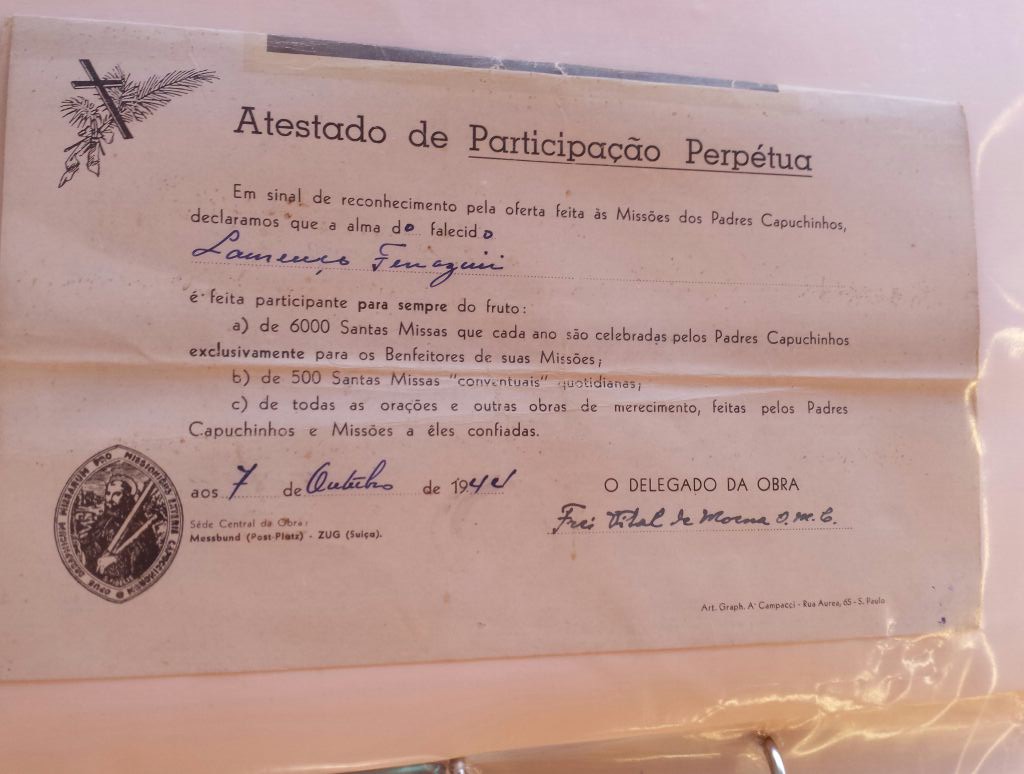 Atestado de Participação Perpétua
Em sinal de reconhecimento pela oferta feita às Missões dos Padres Capuchinhos,
declaramos que a alma do falecido
Lourenço
é feita participante para sempre do fruto:
a) de 6000 Santas Missas que cada ano são celebradas pelos Padres Capuchinhos
exclusivamente para os Benfeitores de suas Missões;
b) de 500 Santas Missas "conventuais" quotidianas;
c) de todas as orações e outras obras de merecimento, feitas pelos Padres
Capuchinhos e Missões a êles confiadas.
aos 7 de Outubro de 1944
O DELEGADO DA OBRA
Frei Vital de Moena O.M.C.
Séde Central da Obra:
Messbund (Post-Platz) - ZUG (Suiça).
OPUS SERAPHICUM MISSARUM PRO MISSIONIBUS EXTERIS CAPUCCINORUM
Art. Graph. A. Campacci - Rua Aurea, 65 - S. Paulo